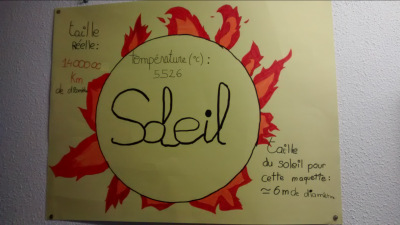 taille
Réelle:
1400000
Km
de diamètre
Température (°c) :
5526
Soleil
taille
du soleil pour
cette maquette :
≈ 6m de diamètre